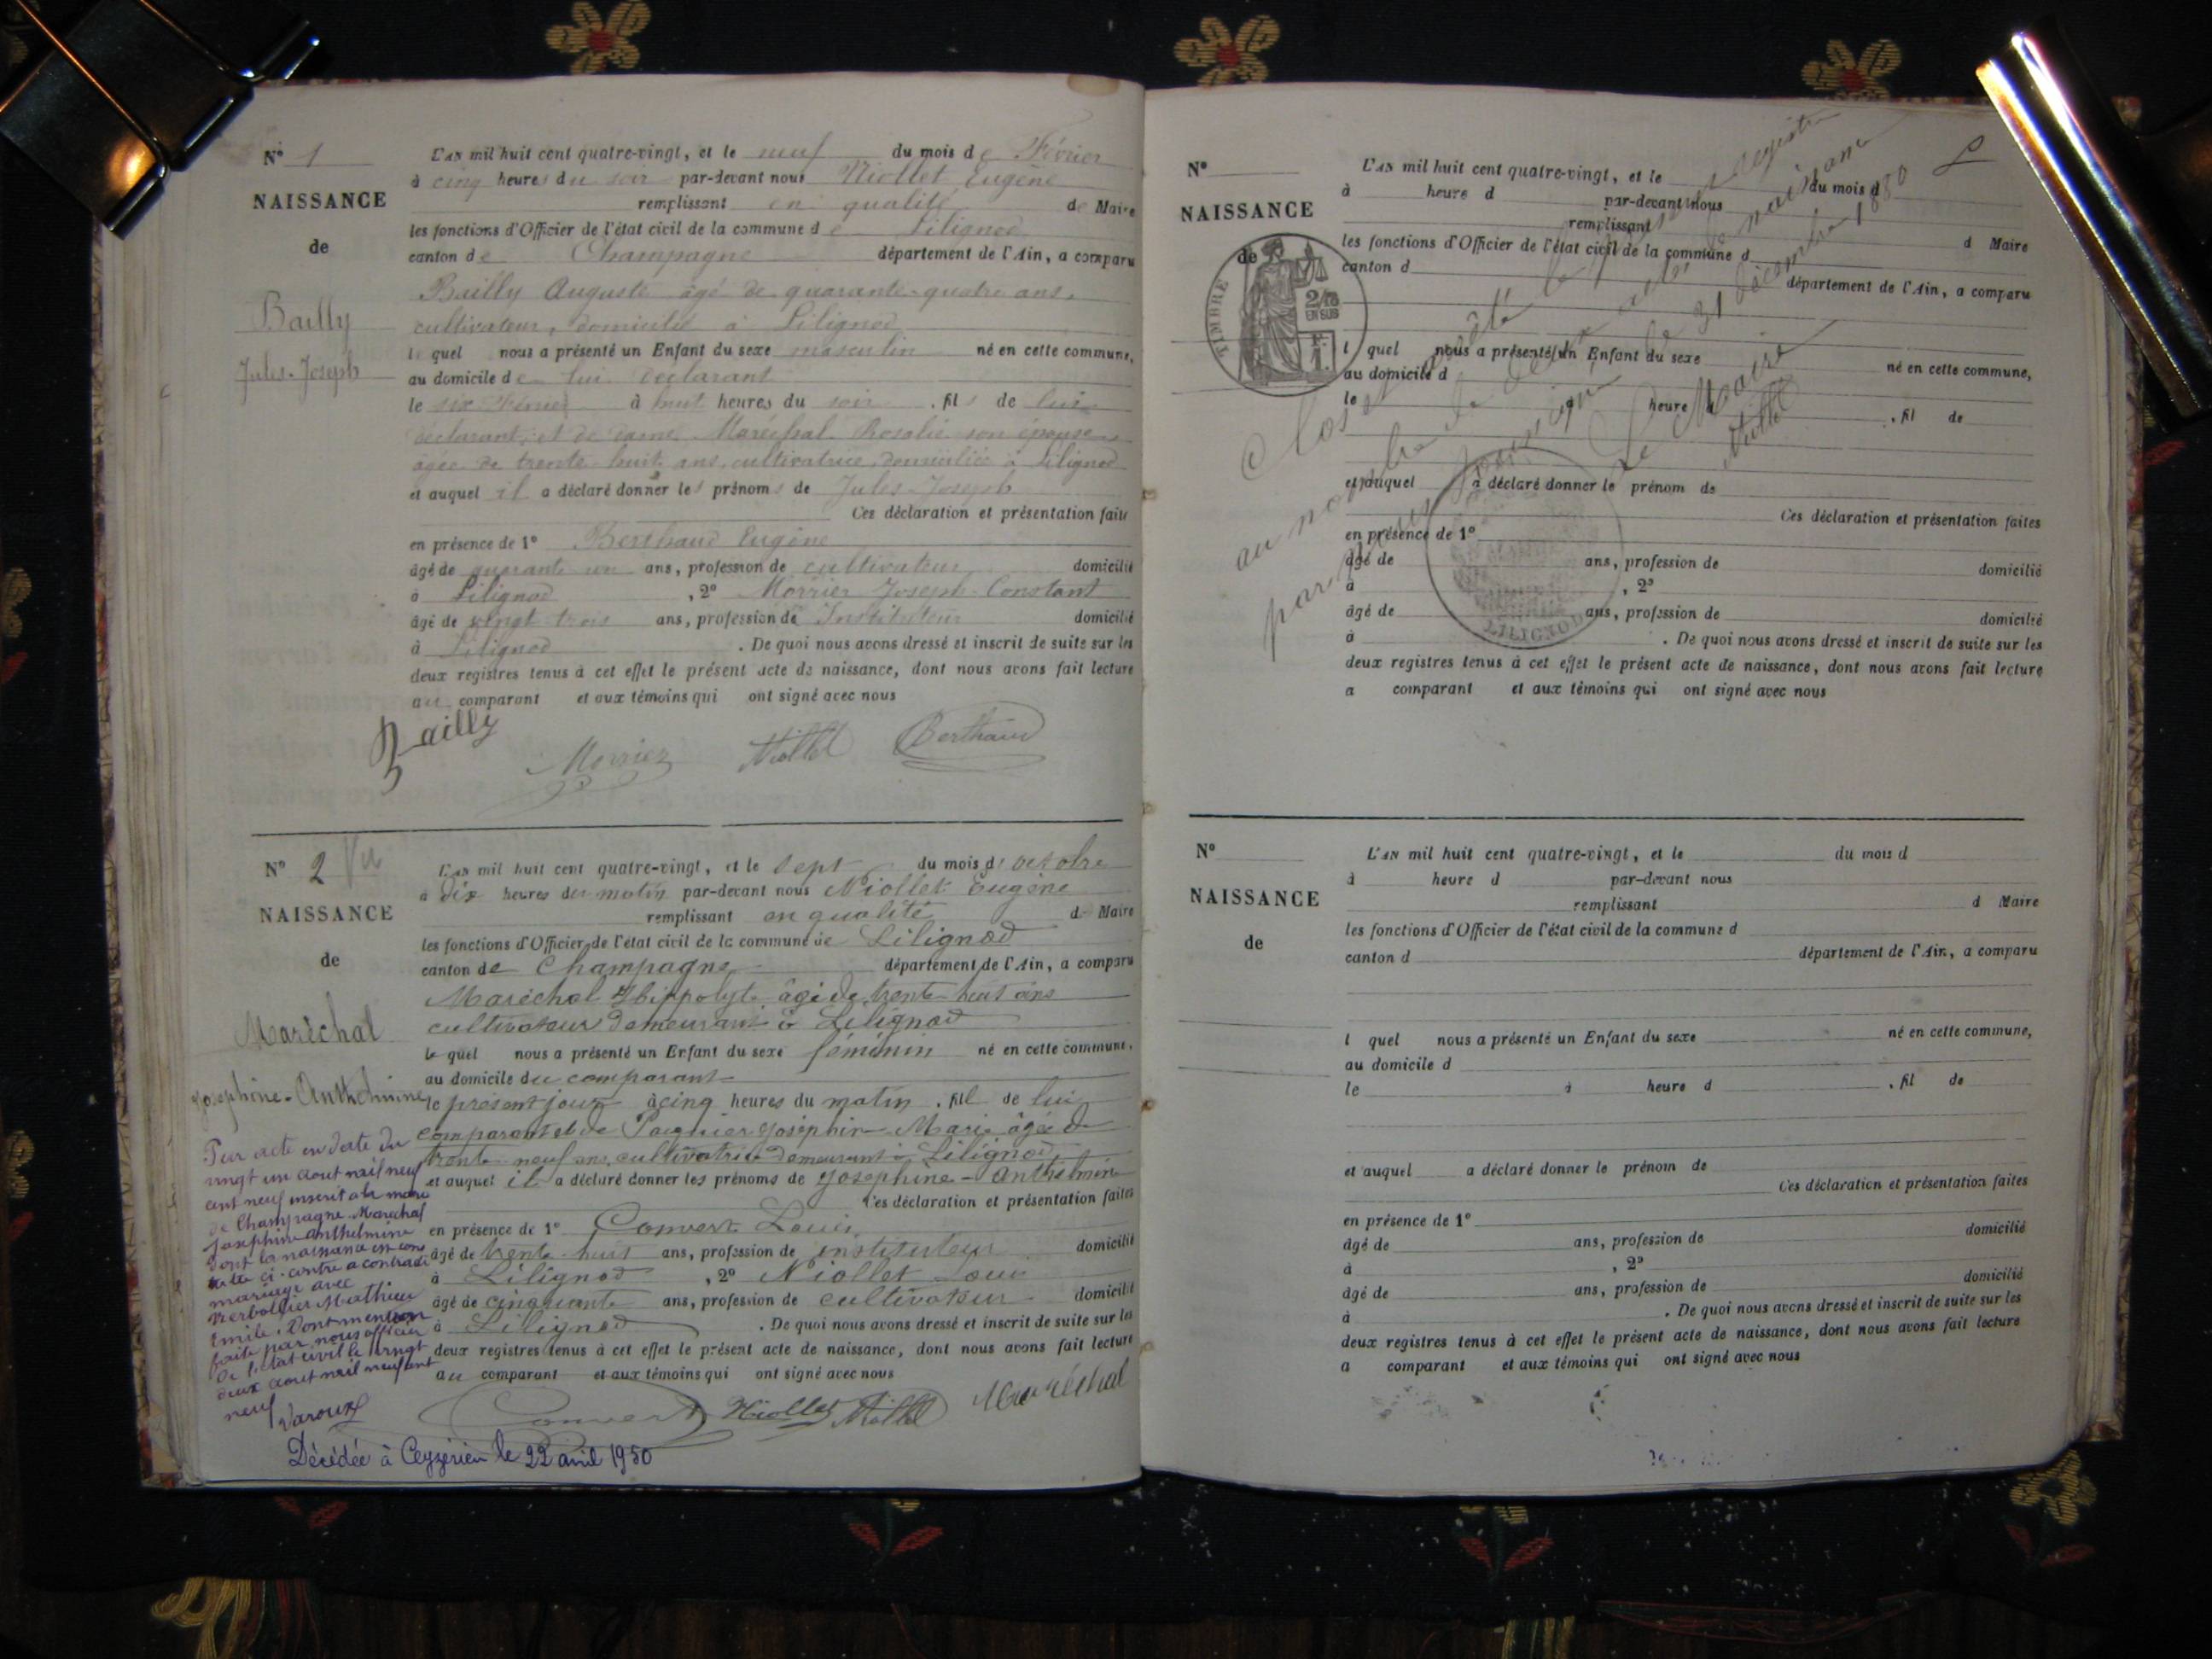 N° 1
NAISSANCE
de
Bailly
Jules-Joseph
L'AN mil huit cent quatre-vingt, et le neuf du mois de Février
à cinq heures du soir par-devant nous Niollet Eugène
remplissant en qualité de Maire
les fonctions d'Officier de l'état civil de la commune de Lilignod
canton de Champagne département de l'Ain, a comparu
Bailly Auguste âgé de quarante-quatre ans,
cultivateur, domicilié à Lilignod
lequel nous a présenté un Enfant du sexe masculin né en cette commune,
au domicile de lui déclarant
le six Février à huit heures du soir, fils de lui
déclarant, et de dame Maréchal Rosalie son épouse
âgée de trente huit ans, cultivatrice, domiciliée à Lilignod
et auquel il a déclaré donner les prénoms de Jules-Joseph
Ces déclaration et présentation faites
en présence de 1° Berthaud Eugène
âgé de quarante un ans, profession de cultivateur domicilié
à Lilignod, 2° Morrier Joseph-Constant
âgé de vingt trois ans, profession de Instituteur domicilié
à Lilignod. De quoi nous avons dressé et inscrit de suite sur les
deux registres tenus à cet effet le présent acte de naissance, dont nous avons fait lecture
au comparant et aux témoins qui ont signé avec nous
Bailly
Morrier Niollet Berthaud
N° 2 Vu
NAISSANCE
de
Maréchal
Joséphine-Anthelmine
L'AN mil huit cent quatre-vingt, et le sept du mois d'octobre
à dix heures du matin par-devant nous Niollet Eugène
remplissant en qualité de Maire
les fonctions d'Officier de l'état civil de la commune de Lilignod
canton de Champagne département de l'Ain, a comparu
Maréchal Hippolyte âgé de trente huit ans
cultivateur demeurant à Lilignod
lequel nous a présenté un Enfant du sexe féminin né en cette commune,
au domicile du comparant
le présent jour à cinq heures du matin, fille de lui
comparant et de Joséphine Marie âgée de
trente neuf ans, cultivatrice demeurant à Lilignod,
et auquel il a déclaré donner les prénoms de Joséphine-Anthelmine
Ces déclaration et présentation faites
en présence de 1° Convert Louis
âgé de trente huit ans, profession de instituteur domicilié
à Lilignod, 2° Niollet Louis
âgé de cinquante ans, profession de cultivateur domicilié
à Lilignod. De quoi nous avons dressé et inscrit de suite sur les
deux registres tenus à cet effet le présent acte de naissance, dont nous avons fait lecture
au comparant et aux témoins qui ont signé avec nous
Convert Niollet Niollet Maréchal
Par acte en date du
vingt un aout mil neuf
cent neuf inscrit a la mairie
de Champagne Maréchal
Joséphine Anthelmine
dont la naissance est cons
tatée ci-contre a contracté
mariage avec
Mathieu
Emile. Dont mention
faite par nous officier
de l'état civil le vingt
deux aout mil neuf cent
neuf
Varoux
Décédée à Ceyzérieu le 22 avril 1950
N°
NAISSANCE
de
TIMBRE
2/10
EN SUS
L'AN mil huit cent quatre-vingt, et le du mois d
à heure d par-devant nous
remplissant d Maire
les fonctions d'Officier de l'état civil de la commune d
canton d département de l'Ain, a comparu
l quel nous a présenté un Enfant du sexe né en cette commune,
au domicile d
le à heure d, fil de
et auquel a déclaré donner le prénom de
Ces déclaration et présentation faites
en présence de 1°
âgé de ans, profession de domicilié
à, 2°
âgé de ans, profession de domicilié
à. De quoi nous avons dressé et inscrit de suite sur les
deux registres tenus à cet effet le présent acte de naissance, dont nous avons fait lecture
a comparant et aux témoins qui ont signé avec nous
Clos et arrêté le présent registre
au nombre de deux actes de naissance
par nous le 31 décembre 1880
Le Maire
Niollet
LILIGNOD
N°
NAISSANCE
de
L'AN mil huit cent quatre-vingt, et le du mois d
à heure d par-devant nous
remplissant d Maire
les fonctions d'Officier de l'état civil de la commune d
canton d département de l'Ain, a comparu
l quel nous a présenté un Enfant du sexe né en cette commune,
au domicile d
le à heure d, fil de
et auquel a déclaré donner le prénom de
Ces déclaration et présentation faites
en présence de 1°
âgé de ans, profession de domicilié
à, 2°
âgé de ans, profession de domicilié
à. De quoi nous avons dressé et inscrit de suite sur les
deux registres tenus à cet effet le présent acte de naissance, dont nous avons fait lecture
a comparant et aux témoins qui ont signé avec nous